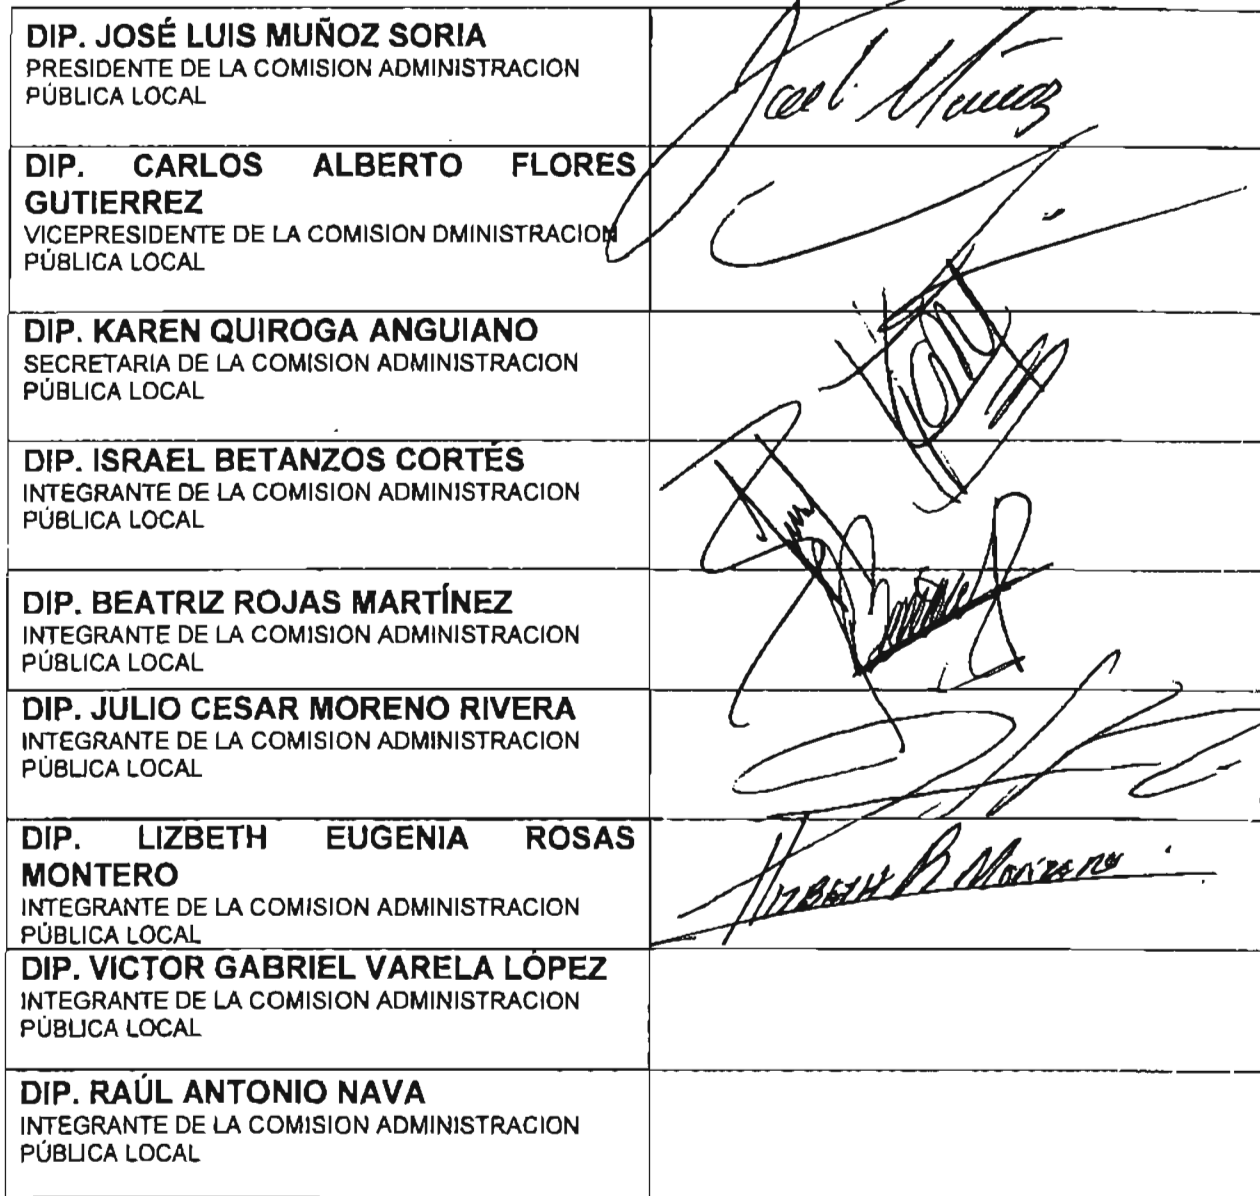 DIP. JOSÉ LUIS MUÑOZ SORIA
PRESIDENTE DE LA COMISION ADMINISTRACION
PÚBLICA LOCAL
Muñoz
DIP. CARLOS ALBERTO FLORES
GUTIERREZ
VICEPRESIDENTE DE LA COMISION DMINISTRACION
PÚBLICA LOCAL
DIP. KAREN QUIROGA ANGUIANO
SECRETARIA DE LA COMISION ADMINISTRACION
PÚBLICA LOCAL
DIP. ISRAEL BETANZOS CORTÉS
INTEGRANTE DE LA COMISION ADMINISTRACION
PÚBLICA LOCAL
DIP. BEATRIZ ROJAS MARTÍNEZ
INTEGRANTE DE LA COMISION ADMINISTRACION
PÚBLICA LOCAL
DIP. JULIO CESAR MORENO RIVERA
INTEGRANTE DE LA COMISION ADMINISTRACION
PÚBLICA LOCAL
DIP. LIZBETH EUGENIA ROSAS
MONTERO
INTEGRANTE DE LA COMISION ADMINISTRACION
PÚBLICA LOCAL
DIP. VICTOR GABRIEL VARELA LÓPEZ
INTEGRANTE DE LA COMISION ADMINISTRACION
PÚBLICA LOCAL
DIP. RAÚL ANTONIO NAVA
INTEGRANTE DE LA COMISION ADMINISTRACION
PÚBLICA LOCAL